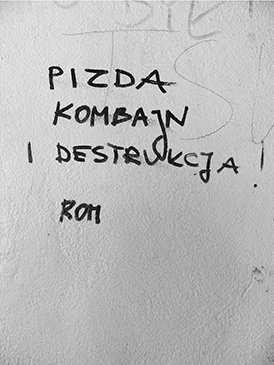 PIZDA
KOMBAJN
I DESTRUKCJA!
ROM